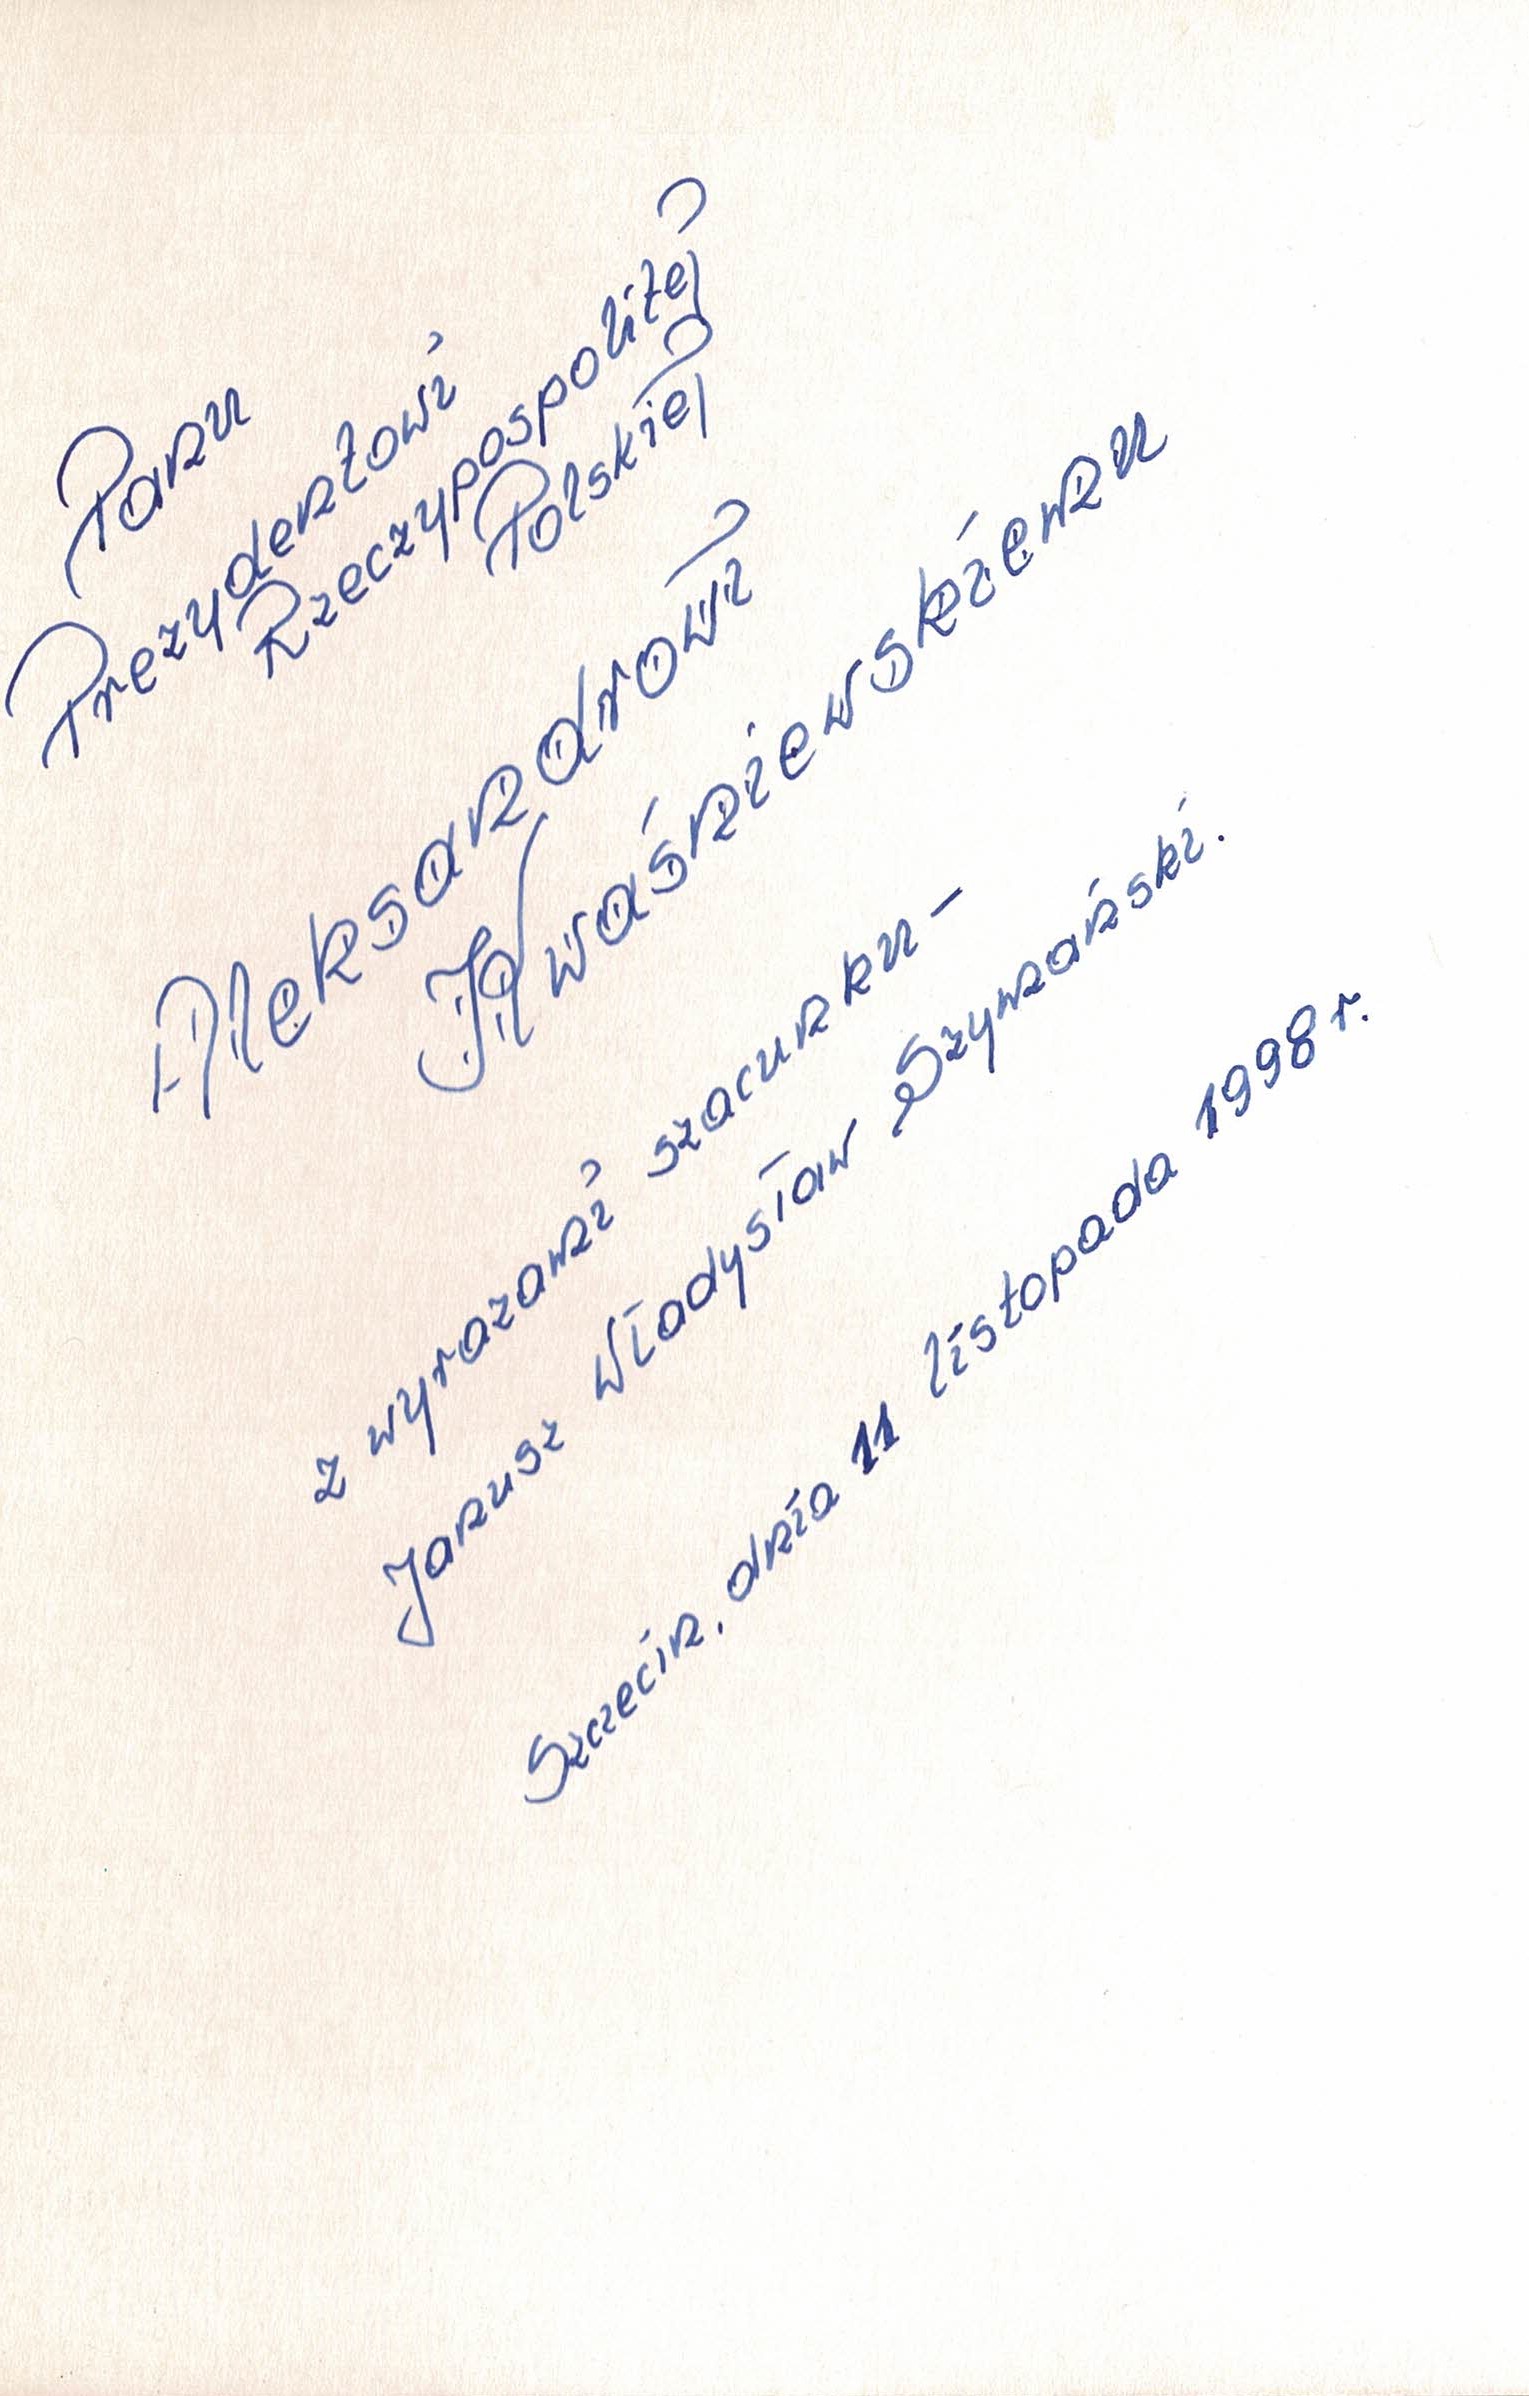 Panu
Prezydentowi
Rzeczypospolitej
Polskiej
Aleksandrowi
Kwaśniewskiemu
z wyrazami szacunku –
Janusz Władysław Szymański.
Szczecin, dnia 11 listopada 1998 r.